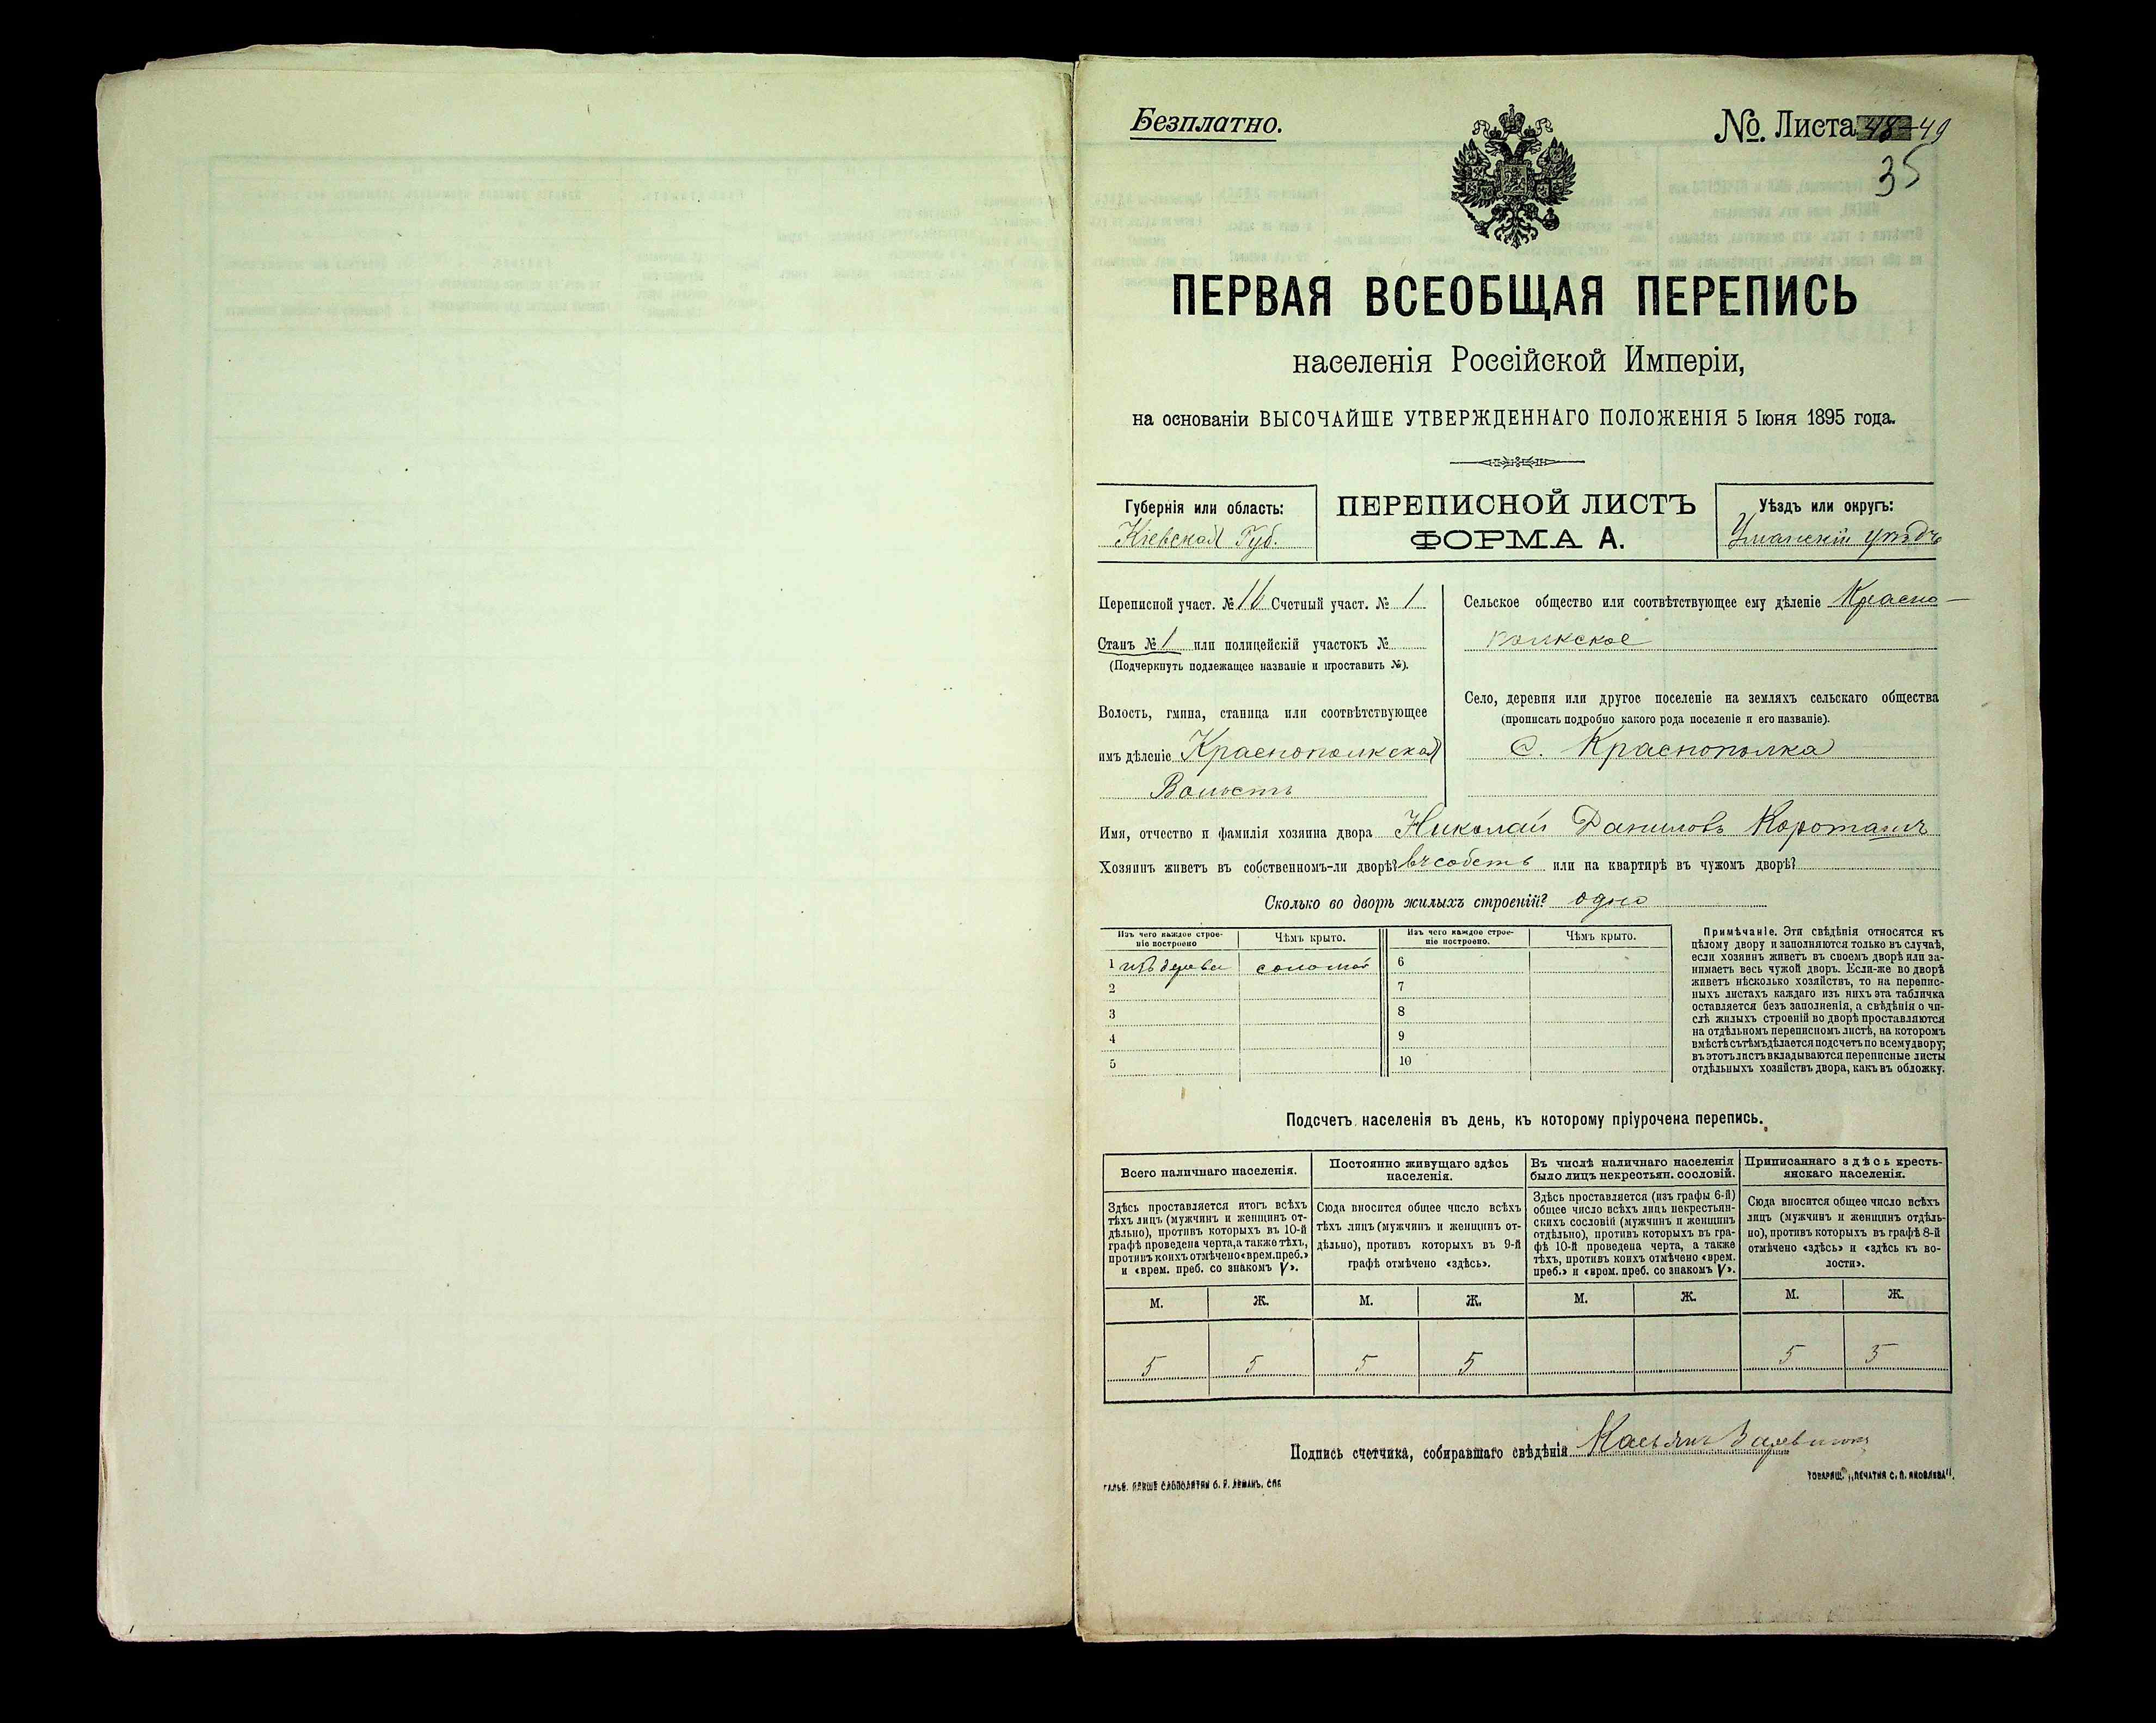 Безплатно.
№ Листа 48 49
35
ПЕРВАЯ ВСЕОБЩАЯ ПЕРЕПИСЬ
населенія Россійской Имперіи,
на основаніи ВЫСОЧАЙШЕ УТВЕРЖДЕННАГО ПОЛОЖЕНІЯ 5 Іюня 1895 года.
Губернія или область:
Кіевская Губ.
ПЕРЕПИСНОЙ ЛИСТЪ
ФОРМА А.
Уѣздъ или округъ:
Уманскій уѣздъ
Переписной участ. № 16 Счетный участ. № 1
Станъ № 1 или полицейскій участокъ №
(Подчеркнуть подлежащее названіе и проставить №).
Волость, гмина, станица или соотвѣтствующее
имъ дѣленіе Краснополкская
Волость
Сельское общество или соотвѣтствующее ему дѣленіе Красно-
полкское
Село, деревня или другое поселеніе на земляхъ сельскаго общества
(прописать подробно какого рода поселеніе и его названіе).
С. Краснополка
Имя, отчество и фамилія хозяина двора Николай Даниловъ
Хозяинъ живетъ въ собственномъ-ли дворѣ? въ собств или на квартирѣ въ чужомъ дворѣ?
Сколько во дворѣ жилыхъ строеній? одно
Изъ чего каждое строе-
ніе построено
Чѣмъ крыто.
Изъ чего каждое строе-
ніе построено.
Чѣмъ крыто.
1 изъ дерева соломой
2
3
4
5
6
7
8
9
10
Примѣчаніе. Эти свѣдѣнія относятся къ
цѣлому двору и заполняются только въ случаѣ,
если хозяинъ живетъ въ своемъ дворѣ или за-
нимаетъ весь чужой дворъ. Если-же во дворѣ
живетъ нѣсколько хозяйствъ, то на перепис-
ныхъ листахъ каждаго изъ нихъ эта табличка
оставляется безъ заполненія, а свѣдѣнія о чи-
слѣ жилыхъ строеній во дворѣ проставляются
на отдѣльномъ переписномъ листѣ, на которомъ
вмѣстѣ съ тѣмъ дѣлается подсчетъ по всему двору;
въ этотъ листъ вкладываются переписные листы
отдѣльныхъ хозяйствъ двора, какъ въ обложку.
Подсчетъ населенія въ день, къ которому пріурочена перепись.
Всего наличнаго населенія.
Здѣсь проставляется итогъ всѣхъ
тѣхъ лицъ (мужчинъ и женщинъ от-
дѣльно), противъ которыхъ въ 10-й
графѣ проведена черта, а также тѣхъ,
противъ коихъ отмѣчено «врем. преб.»
и «врем. преб. со знакомъ V».
Постоянно живущаго здѣсь
населенія.
Сюда вносится общее число всѣхъ
тѣхъ лицъ (мужчинъ и женщинъ от-
дѣльно), противъ которыхъ въ 9-й
графѣ отмѣчено «здѣсь».
Въ числѣ наличнаго населенія
было лицъ некрестьян. сословій.
Здѣсь проставляется (изъ графы 6-й)
общее число всѣхъ лицъ некрестьян-
скихъ сословій (мужчинъ и женщинъ
отдѣльно), противъ которыхъ въ гра-
фѣ 10-й проведена черта, а также
тѣхъ, противъ коихъ отмѣчено «врем.
преб.» и «врем. преб. со знакомъ V».
Приписаннаго здѣсь кресть-
янскаго населенія.
Сюда вносится общее число всѣхъ
лицъ (мужчинъ и женщинъ отдѣль-
но), противъ которыхъ въ графѣ 8-й
отмѣчено «здѣсь» и «здѣсь къ во-
лости».
М. Ж. М. Ж. М. Ж. М. Ж.
5 5 5 5 5 5
Подпись счетчика, собиравшаго свѣдѣнія Касьян
ТОВАРИЩ. „ПЕЧАТНЯ С. П. ЯКОВЛЕВА".